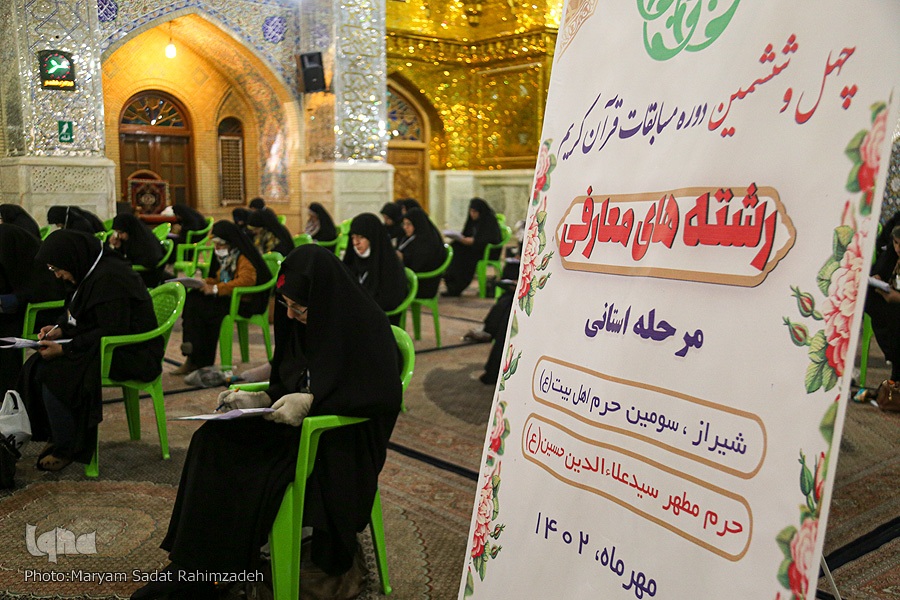 چهل و ششمین دوره مسابقات قرآن کریم
رشته های معارفی
مرحله استانی
شیراز ، سومین حرم اهل بیت (ع)
حرم مطهر سیدعلاءالدین حسین (ع)
مهرماه، ۱۴۰۲
iqna
Photo:Maryam Sadat Rahimzadeh